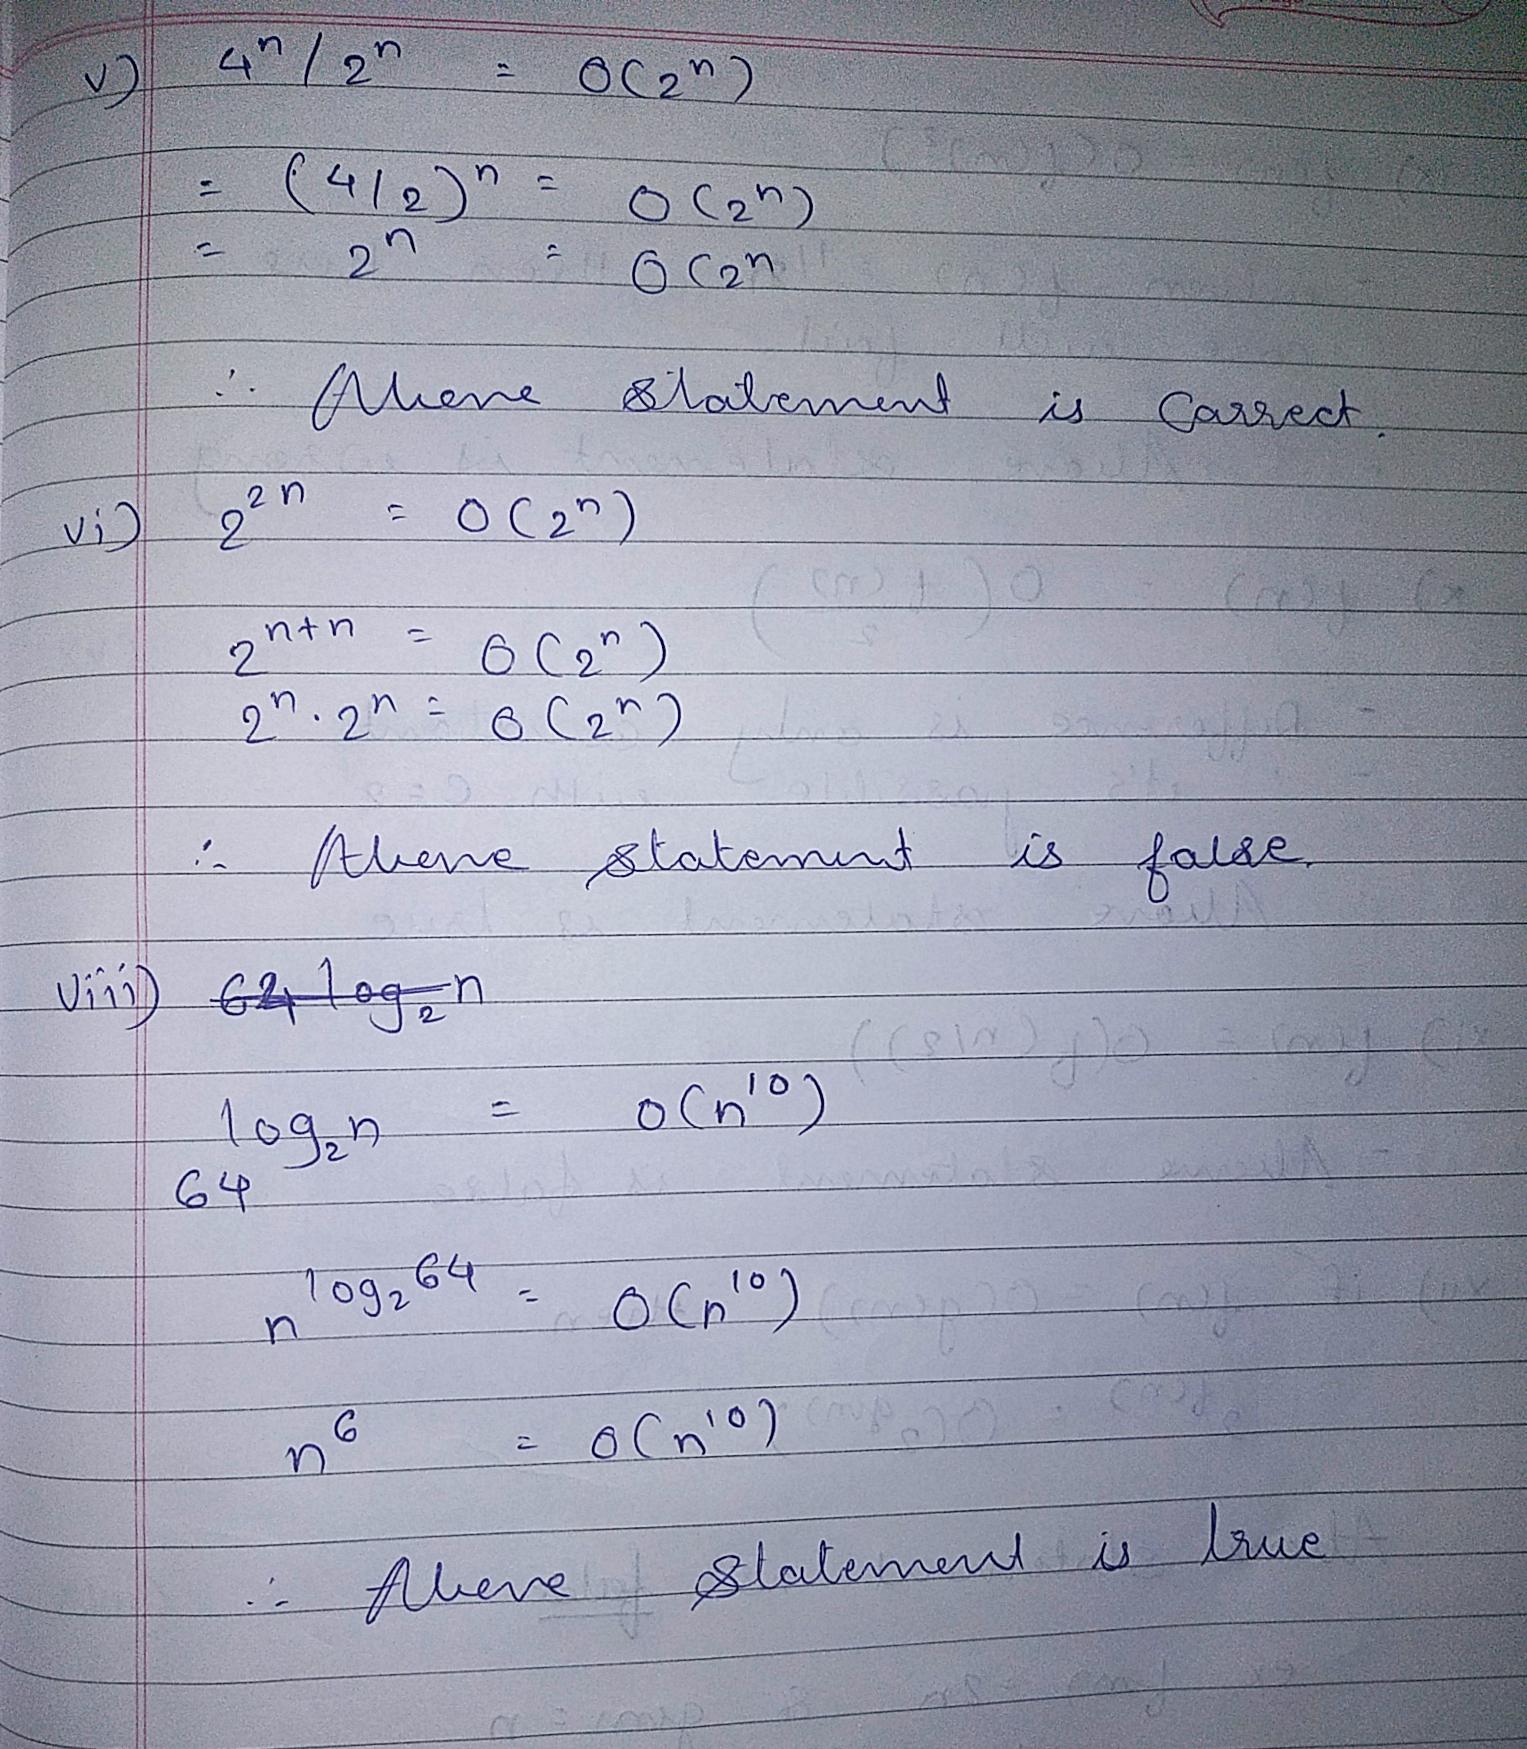 v) 4ⁿ / 2ⁿ = O(2ⁿ)
= (4/2)ⁿ = O(2ⁿ)
= 2ⁿ = O(2ⁿ
∴ Above statement is Correct.
vi) 2²ⁿ = O(2ⁿ)
2ⁿ⁺ⁿ = O(2ⁿ)
2ⁿ . 2ⁿ = O(2ⁿ)
∴ Above statement is false.
viii) 64 log₂n
log₂n = O(n¹⁰)
64
n^log₂64 = O(n¹⁰)
n⁶ = O(n¹⁰)
∴ Above statement is true